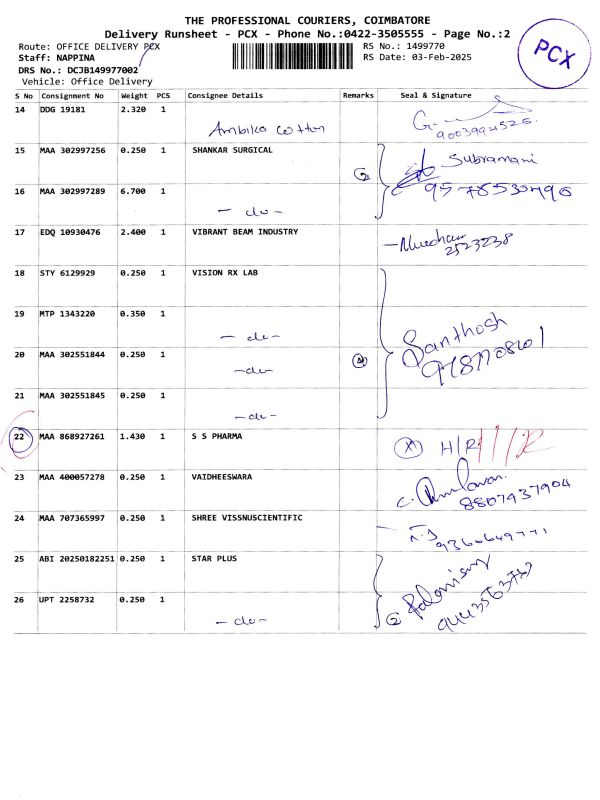 THE PROFESSIONAL COURIERS, COIMBATORE
Delivery Runsheet - PCX - Phone No.:0422-3505555 - Page No.:2
Route: OFFICE DELIVERY PCX
RS No.: 1499770
Staff: NAPPINA
RS Date: 03-Feb-2025
DRS No.: DCJB149977002
Vehicle: Office Delivery
PCX
S No Consignment No Weight PCS Consignee Details Remarks Seal & Signature
14 DDG 19181 2.320 1
Ambika cotton
G.
9003994525.
15 MAA 302997256 0.250 1 SHANKAR SURGICAL
2
Subramani
16 MAA 302997289 6.700 1
- do -
17 EDQ 10930476 2.400 1 VIBRANT BEAM INDUSTRY
2523238
18 STY 6129929 0.250 1 VISION RX LAB
19 MTP 1343220 0.350 1
- do -
Santhosh
20 MAA 302551844 0.250 1
- do -
4
21 MAA 302551845 0.250 1
- do -
22 MAA 868927261 1.430 1 S S PHARMA
X H/R
23 MAA 400057278 0.250 1 VAIDHEESWARA
8807937904
24 MAA 707365997 0.250 1 SHREE VISSNUSCIENTIFIC
9360649771
25 ABI 20250182251 0.250 1 STAR PLUS
26 UPT 2258732 0.250 1
- do -
2